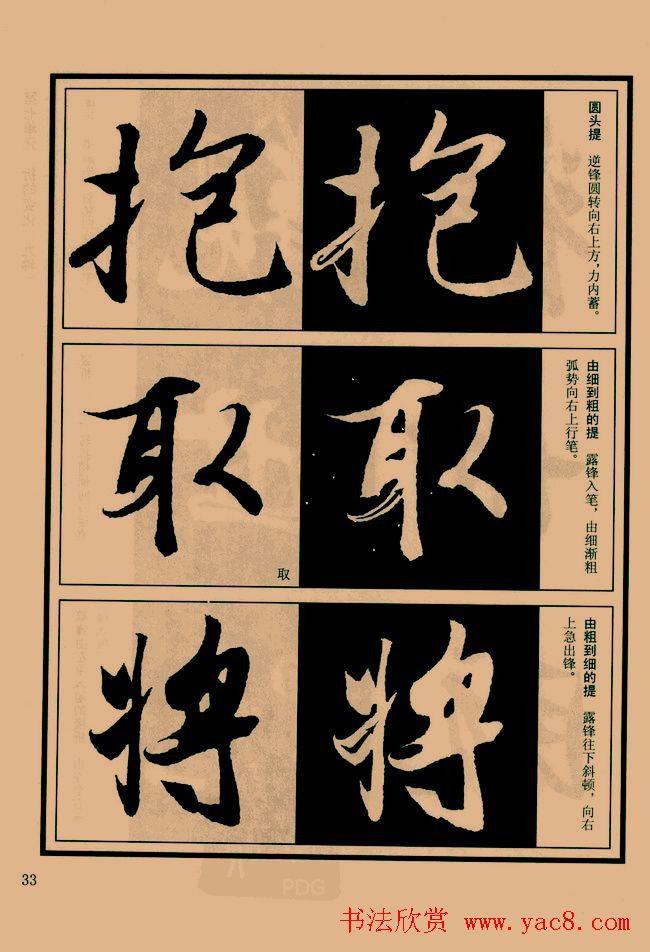 抱 抱
圆头提 逆锋圆转向右上方,力内蓄。
取 取
取
由细到粗的提 露锋入笔,由细渐粗
弧势向右上行笔。
将 将
由粗到细的提 露锋往下斜顿,向右
上急出锋。
33
PDG
书法欣赏 www.yac8.com